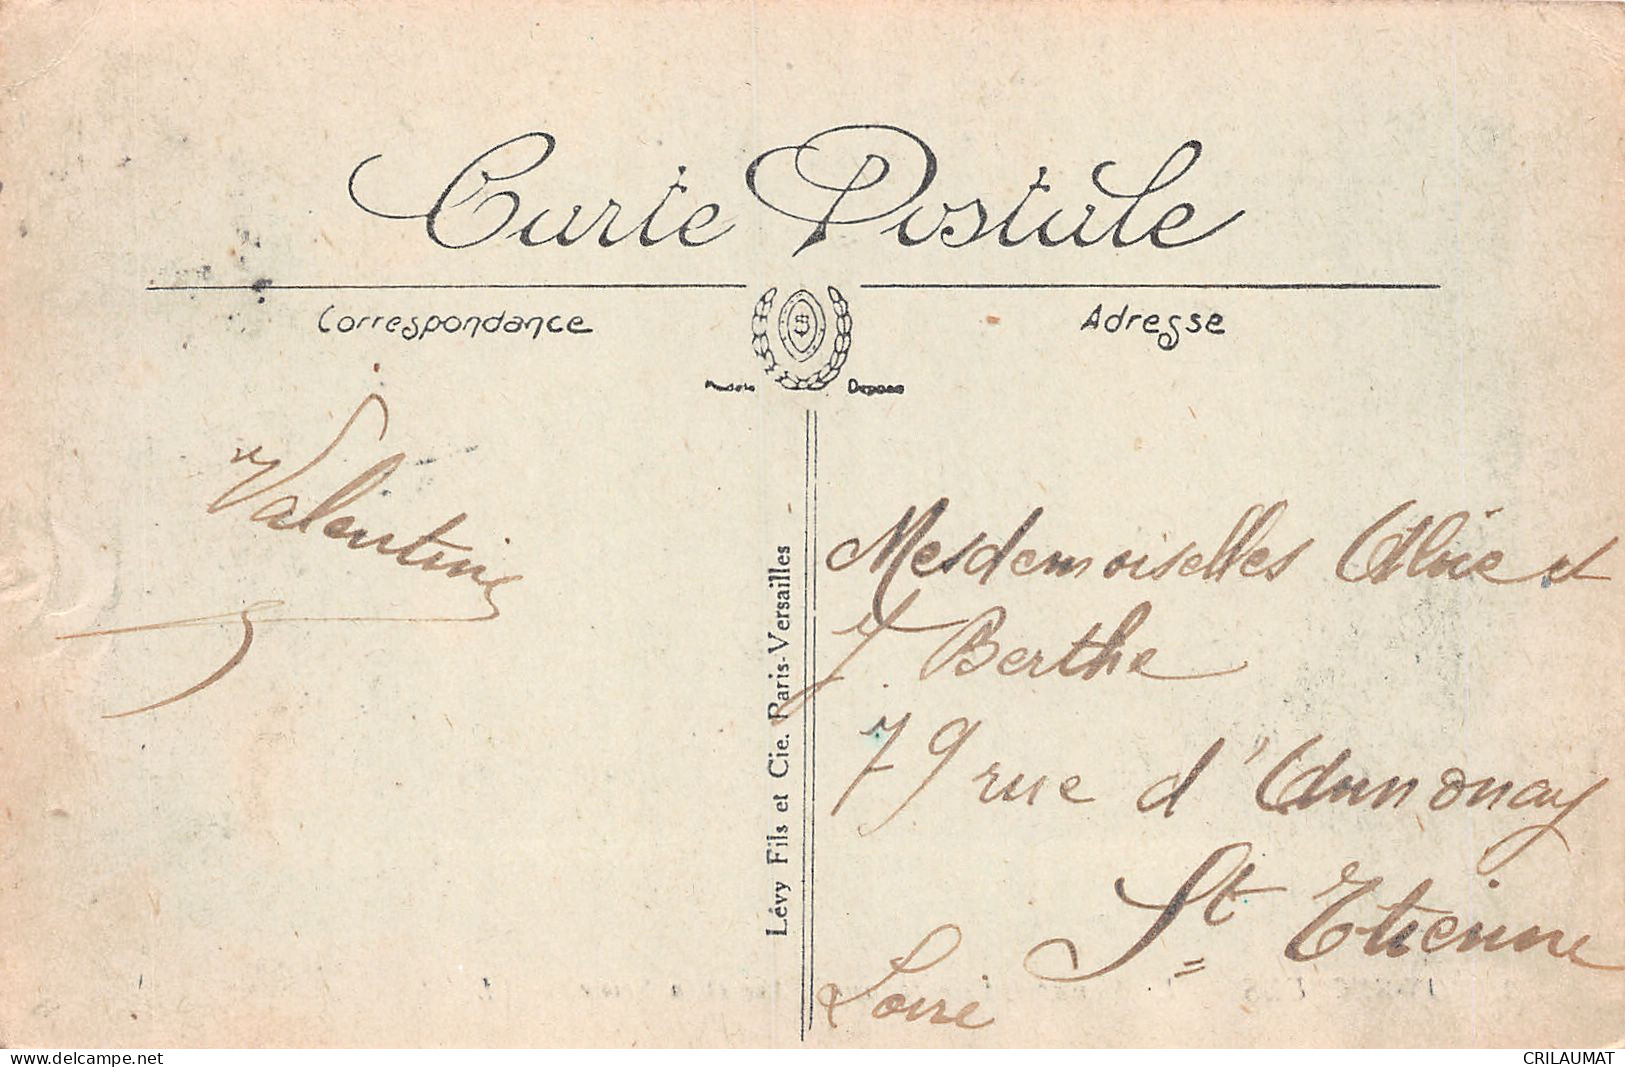 Carte Postale
Correspondance
Adresse
Valentine
Lévy Fils et Cie. Paris-Versailles
Mesdemoiselles Alice et
Y. Berthe
79 rue d'Annonay
St Etienne
Loire
www.delcampe.net
CRILAUMAT